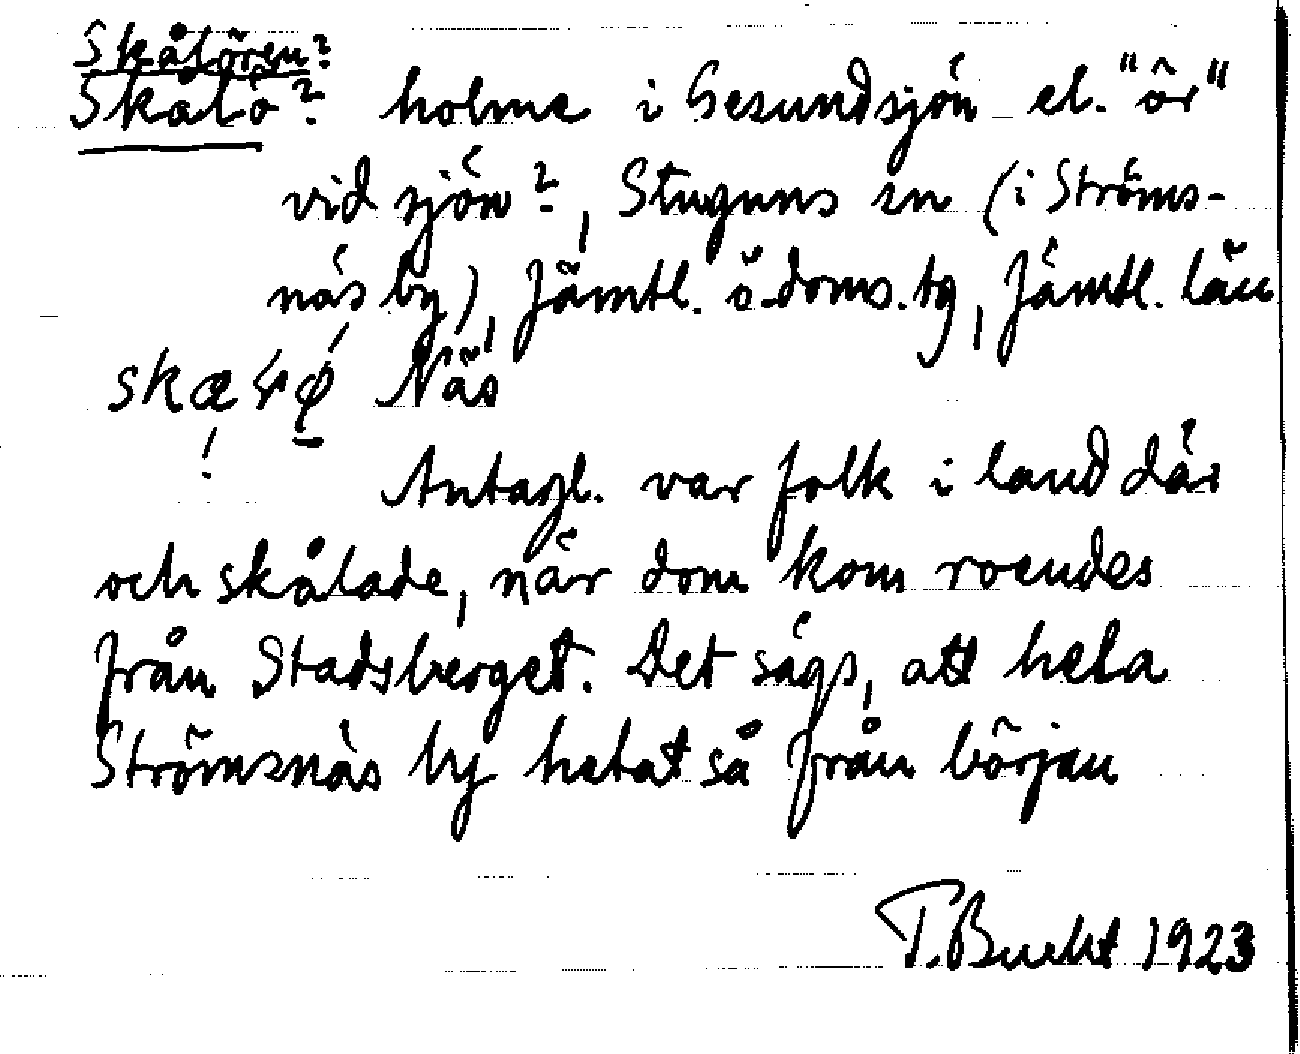 Skålören?
Skålö? holme i Gesundsjön el. "ör"
vid sjön?, Stuguns sn (i Ströms-
näs by), Jämtl. ö. doms. tg, Jämtl. län
Näs
Antagl. var folk i land där
och skålade, när dom kom roendes
från Stadsberget. Det sägs, att hela
Strömsnäs by hetat så från början
T. Bucht 1923